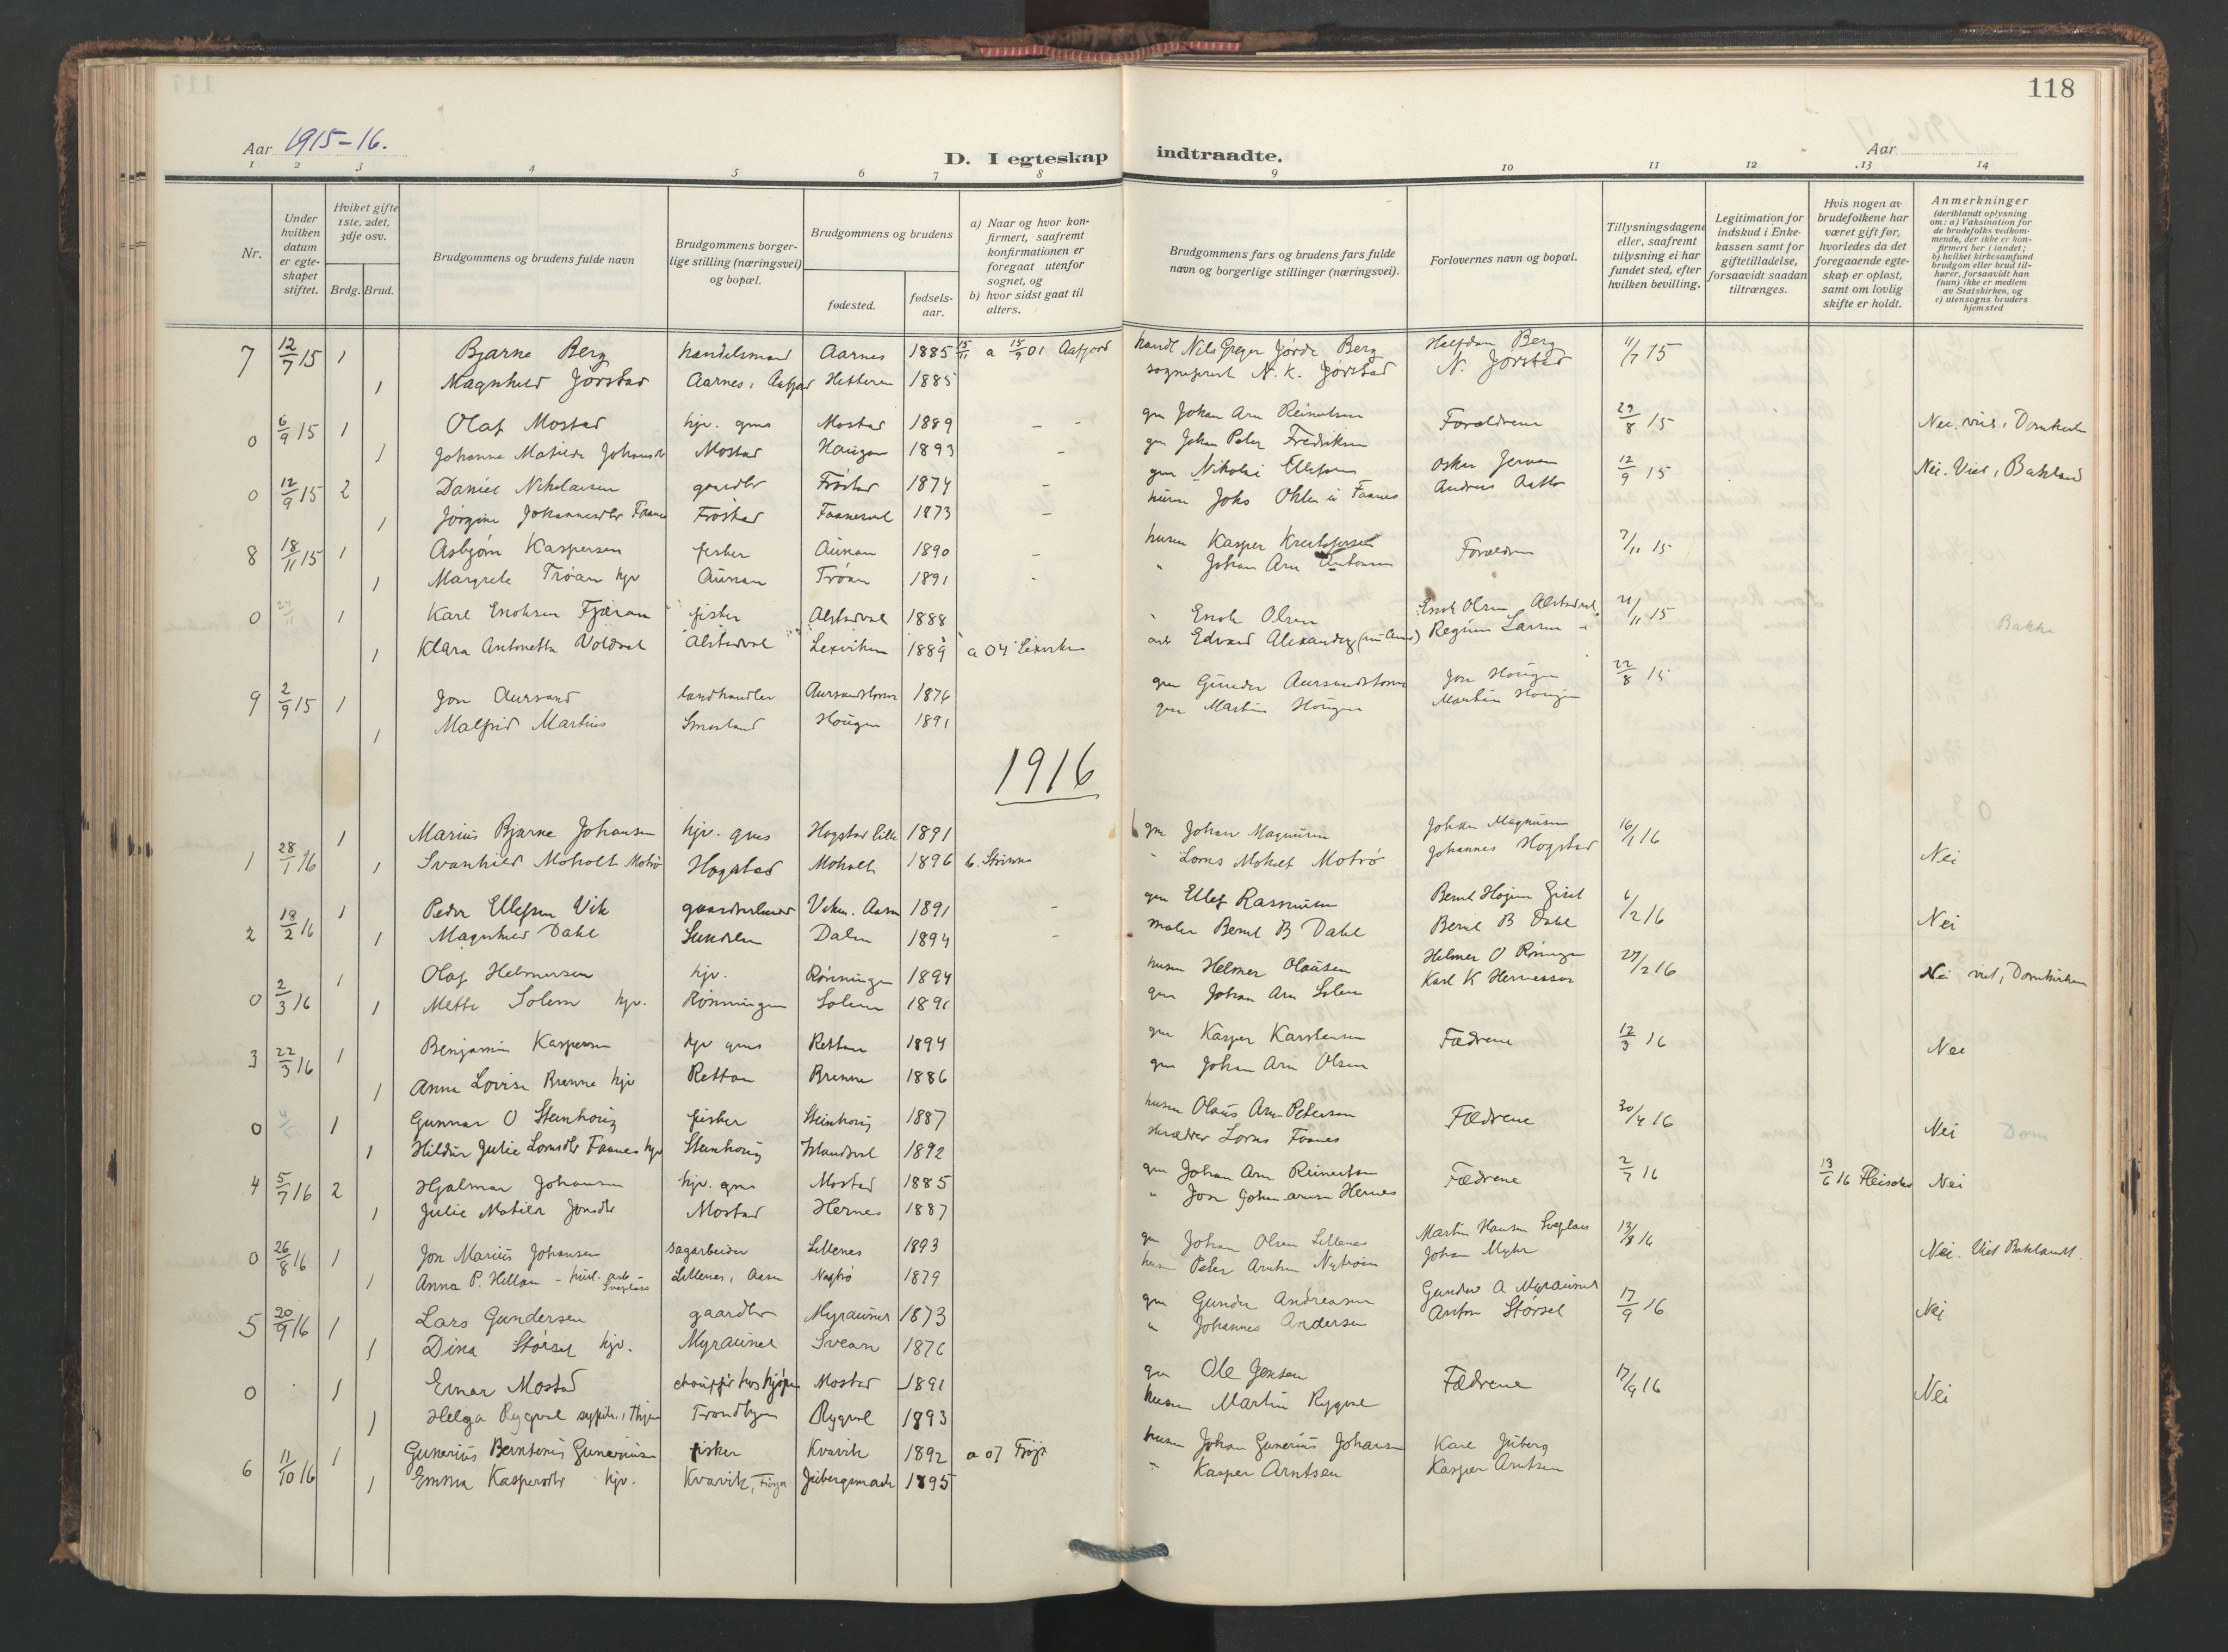 118
Aar 1915-16.
D. I egteskap indtraadte.
Aar
1 2 3 4 5 6 7 8 9 10 11 12 13 14
Nr.
Under hvilken datum er egteskapet stiftet.
Hviket gifte 1ste, 2det, 3dje osv.
Brdg. Brud.
Brudgommens og brudens fulde navn
Brudgommens borgerlige stilling (næringsvei) og bopæl.
Brudgommens og brudens
fødested.
fødsels-aar.
a) Naar og hvor konfirmert, saafremt konfirmationen er foregaat utenfor sognet, og
b) hvor sidst gaat til alters.
Brudgommens fars og brudens fars fulde navn og borgerlige stillinger (næringsvei).
Forlovernes navn og bopæl.
Tillysningsdagene eller, saafremt tillysning ei har fundet sted, efter hvilken bevilling.
Legitimation for indskud i Enkekassen samt for giftetilladelse, forsaavidt saadan tiltrænges.
Hvis nogen av brudefolkene har været gift før, hvorledes da det foregaaende egteskap er opløst, samt om lovlig skifte er holdt.
Anmerkninger
(deriblandt oplysning om: a) Vaksination for de brudefolks vedkommende, der ikke er konfirmert her i landet; b) hvilket kirkesamfund brudgom eller brud tilhører, forsaavidt han (hun) ikke er medlem av Statskirken, og c) utensogns bruders hjemsted
7 12/7 15 1 Bjarne Berg handelsmand Aarnes 1885 a 15/9 01 Aafjord handl Nils Greger Jörde Berg Halfdan Berg 11/7 15
1 Magnhild Jörstad Aarnes, Aafjord Hitteren 1885 sogneprest N. K. Jörstad N. Jörstad
0 6/9 15 1 Olaf Mostad hjv. gms Mostad 1889 gm Johan Arn Reinertsen Forældrene 29/8 15 Nei. viet i Domkirken
1 Johanne Matilde Johansdtr Mostad Haugen 1893 gm Johan Peter Fredriksen
0 12/9 15 2 Daniel Nikolaisen gaardbr Fröstad 1874 gm Nikolai Ellefsen Oskar Jerven 12/9 15 Nei. Viet i Bakland
1 Jörgine Johannesdtr Faanes Fröstad Faanesval 1873 husm Johs Faanes Andreas
8 18/11 15 1 Asbjörn Kaspersen fisker Aunan 1890 husm Kasper Kristofersen Forældrene 7/11 15
1 Margrete Tröan hjv Aunan Tröan 1891 " Johan Arn Antonsen
0 1 Karl Enoksen Fjæran fisker Alstadval 1888 " Enok Olsen Enok Olsen Alstadval 21/11 15
1 Klara Antonette Voldval Alstadval Lexviken 1889 a 04 Lexviken arb Edvard Alexandersen Regines Larsen Bakke
9 2/9 15 1 Jon Aursand landhandler 1876 gm Gunder Jon Hougen 22/8 15
1 Malfrid Martins Hougen 1891 gm Martin Hougen Martin Hougen
1916
1 28/1 16 1 Marius Bjarne Johansen hjv. gms Hogstad lille 1891 gm Johan Magnusen Johan Magnusen 16/1 16
1 Svanhild Moholt Motrö Hogstad Moholt 1896 b. Strinna " Lorns Moholt Motrö Johannes Hogstad Nei
2 18/2 16 1 Peder Ellefsen Vik Viken. Aasen 1891 gm Ellef Rasmusen Bernt Hojem Gisel 6/2 16 Nei
1 Magnhild Dahl Sundlen Dalen 1894 maler Bernt B Dahl Bernt B Dahl
0 2/3 16 1 Olaf Helmersen hjv. Rönningen 1894 husm Helmer Olausen Helmer O Röningen 27/2 16 Nei viet i Domkirken
1 Mette Solem hjv. Rönningen Solem 1891 gm Johan Arn Solem Karl K Hernessos
3 22/3 16 1 Benjamin Kaspersen hjv gms Rettan 1894 gm Kasper Karstensen Fædrene 12/3 16 Nei
1 Anna Lovise Brenne hjv Rettan Brenne 1886 gm Johan Arn Olsen
0 1 Gunnar O Steinhoug fisker Steinhoug 1887 husm Olaus Arn Petersen Fædrene 30/4 16 Nei Dom
1 Hildur Julie Lornsdtr Faanes hjv Steinhoug 1892 skrædder Lorns Faanes
4 5/7 16 2 Hjalmar Johansen hjv. gms Mostad 1885 gm Johan Arn Reinertsen Fædrene 2/7 16 13/6 16 Nei
1 Julie Matilde Jonsdtr Mostad Hernes 1887 " Jon Johan Hernes
0 26/8 16 1 Jon Marius Johansen sagarbeider Lillenes 1893 gm Johan Olsen Lillenes Martin Hansen Sveplass 13/8 16 Nei. Viet Baklandt.
1 Anna P. Hillan Sveplass Lillenes, Aasen 1879 husm Peter Arntsen Johan Myhr
5 20/9 16 1 Lars Gundersen gaardbr Myraunet 1873 gm Gunder Andreasen Gunder A Myraunet 17/9 16 Nei
1 Dina Störset hjv. Myraunet Svean 1876 " Johannes Andersen Anton Störset
0 1 Einar Mostad Mostad 1891 gm Ole Jensen Fædrene 17/9 16 Nei
1 Helga Rygval Trondhjem Rygval 1893 husm Martin Rygval
6 11/10 16 1 Gunerius Berntenis Guneriusen fisker Kvavik 1892 a 07 Fröja husm Johan Gunerius Johansen Karl Juberg
1 Emma Kaspersdtr hjv. Kvavik, Fröja Jubergsmark 1895 " Kasper Arntsen Kasper Arntsen